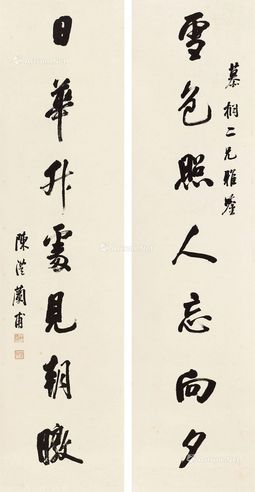 雪色照人忘向夕
慕桐二兄雅鉴
日華升處見朝暾
陳澧蘭甫